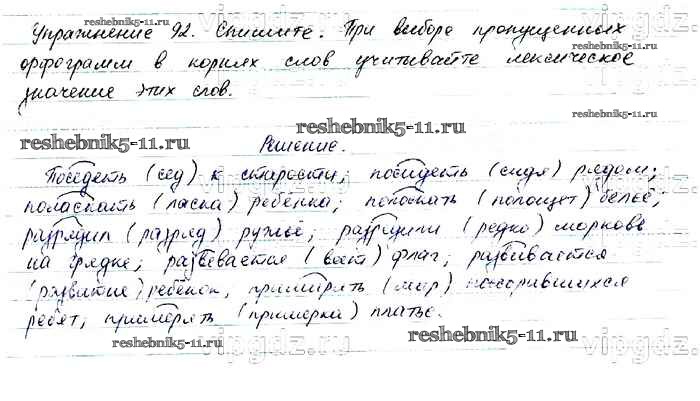 reshebnik5-11.ru
Упражнение 92. Спишите. При выборе пропущенных
орфограмм в корнях слов учитывайте лексическое
значение этих слов.
reshebnik5-11.ru
reshebnik5-11.ru
vipgdz.ru
Решение.
Поседеть (сед) к старости; посидеть (сидя) рядом;
поласкать (ласка) ребёнка; полоскать (полощет) бельё;
reshebnik5-11.ru
разрядил (разряд) ружьё; разредили (редко) морковь
на грядке; развевается (веет) флаг; развивается
(развитие) ребёнок, примирять (мир) поссорившихся
ребят; примерять (примерка) платье.
reshebnik5-11.ru
reshebnik5-11.ru
vipgdz.ru